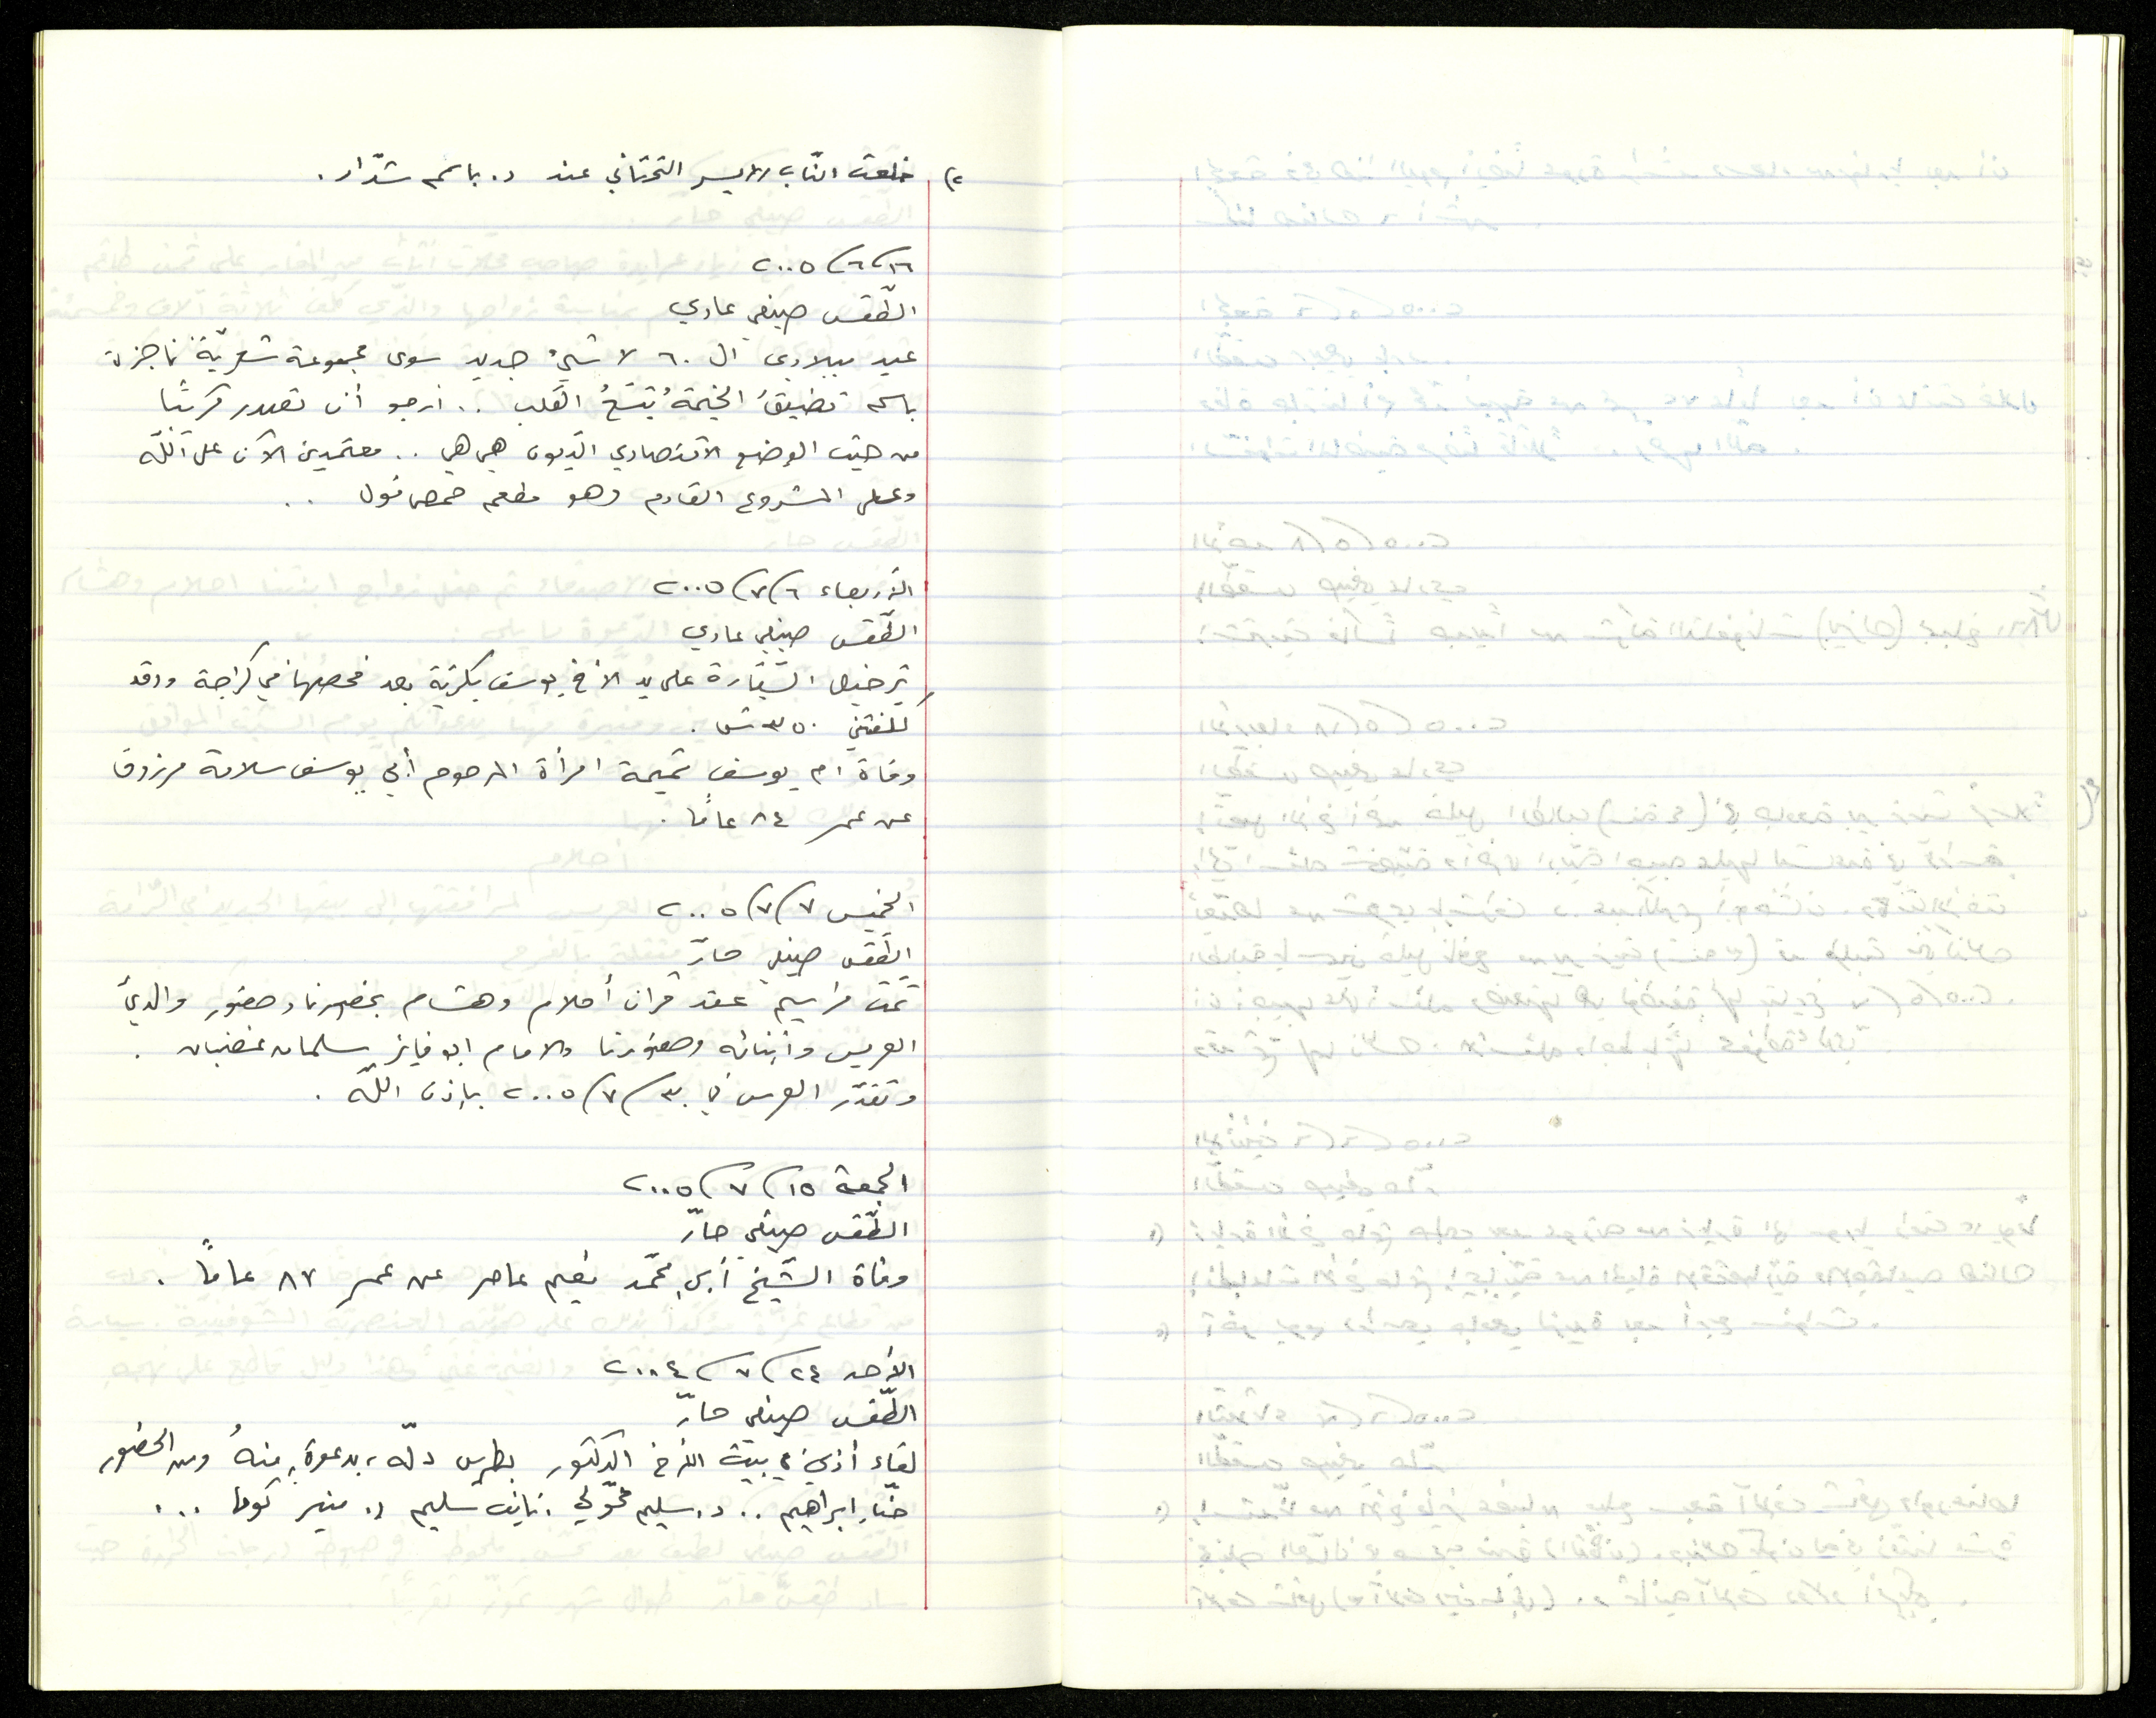 ٢) خلعت النّاب الأيسر التحتاني عند د. باسم شدّاد.
١٦/٦/٢٠٠٥
الطّقس صيفي عادي
عيد ميلادي ال ٦٠ لا شيءَ جديد سوى مجموعة شعريّة ناجزة
باسم تضيقُ الخيمةُ يتسعُ القلب .. أرجو أن تصدر قريبًا
من حيث الوضع الاقتصادي الديون هي هي .. معتمدين الآن على الله
وعلى المشروع القادم وهو مطعم حمص فول ..
الأربعاء ٦/٧/٢٠٠٥
الطّقس صيفي عادي
ترخيص السّيّارة على يد الأخ يوسف بكريّة بعد فحصها في كراجة وقد
كلفتني ٣٥٠ ش.
وفاة ام يوسف تميمة امرأة المرحوم أبي يوسف سلامة مرزوق
عن عمر ٨٤ عامًا.
الخميس ٧/٧/٢٠٠٥
الطّقس صيفي حارّ
تمّت مراسيم عقد قران أحلام وهشام بحضورنا وحضور والديّ
العريس وأبنائه وحضورنا والامام ابو فايز سلمان غضبان.
وتقرّر العرس في ٣٠/٧/٢٠٠٥ بإذن الله.
الجمعة ١٥/٧/٢٠٠٥
الطّقس صيفي حارّ
وفاة الشّيخ أبي محمّد نعيم عامر عن عمر ٨٧ عامًا.
الأحد ٢٤/٧/٢٠٠٤
الطّقس صيفي حارّ
لقاء أدبيّ في بيت الأخ الدكتور بطرس دلّه، بدعوةٍ منهُ ومن الحضور
حنّا ابراهيم .. د. سليم مخّولي. نايف سليم د. منير توما ...